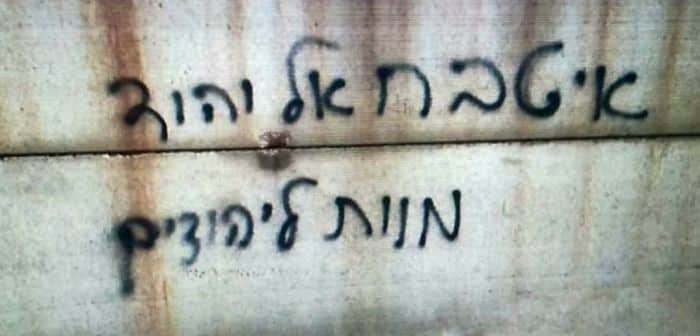 איטבח אל יהוד
מוות ליהודים